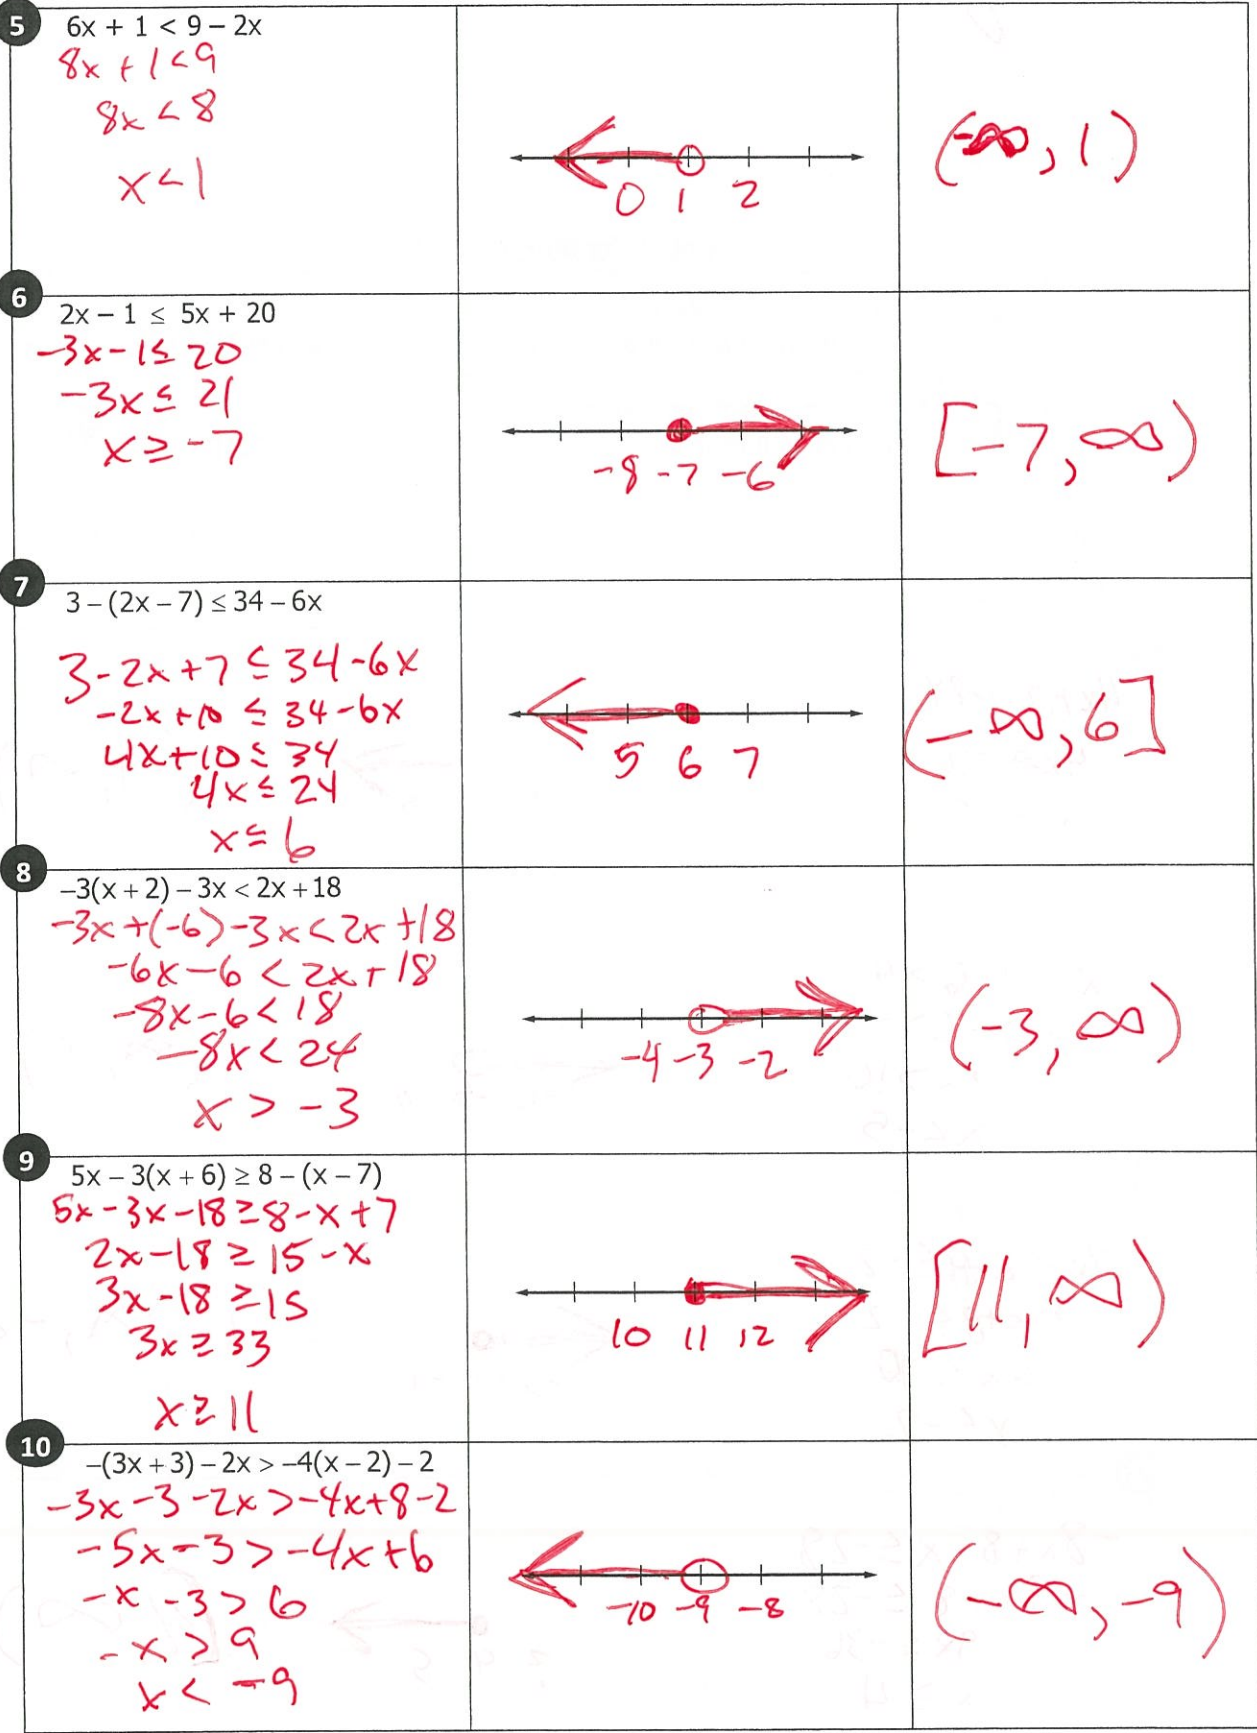 5
6x + 1 < 9 – 2x
8x + 1 < 9
8x < 8
x < 1
0 1 2
(-∞, 1)
6
2x – 1 ≤ 5x + 20
-3x - 1 ≤ 20
-3x ≤ 21
x ≥ -7
-8 -7 -6
[-7, ∞)
7
3 – (2x – 7) ≤ 34 – 6x
3 - 2x + 7 ≤ 34 - 6x
-2x + 10 ≤ 34 - 6x
4x + 10 ≤ 34
4x ≤ 24
x ≤ 6
5 6 7
(-∞, 6]
8
–3(x + 2) – 3x < 2x + 18
-3x + (-6) - 3x < 2x + 18
-6x - 6 < 2x + 18
-8x - 6 < 18
-8x < 24
x > -3
-4 -3 -2
(-3, ∞)
9
5x – 3(x + 6) ≥ 8 – (x – 7)
5x - 3x - 18 ≥ 8 - x + 7
2x - 18 ≥ 15 - x
3x - 18 ≥ 15
3x ≥ 33
x ≥ 11
10 11 12
[11, ∞)
10
–(3x + 3) – 2x > –4(x – 2) – 2
-3x - 3 - 2x > -4x + 8 - 2
-5x - 3 > -4x + 6
-x - 3 > 6
-x > 9
x < -9
-10 -9 -8
(-∞, -9)